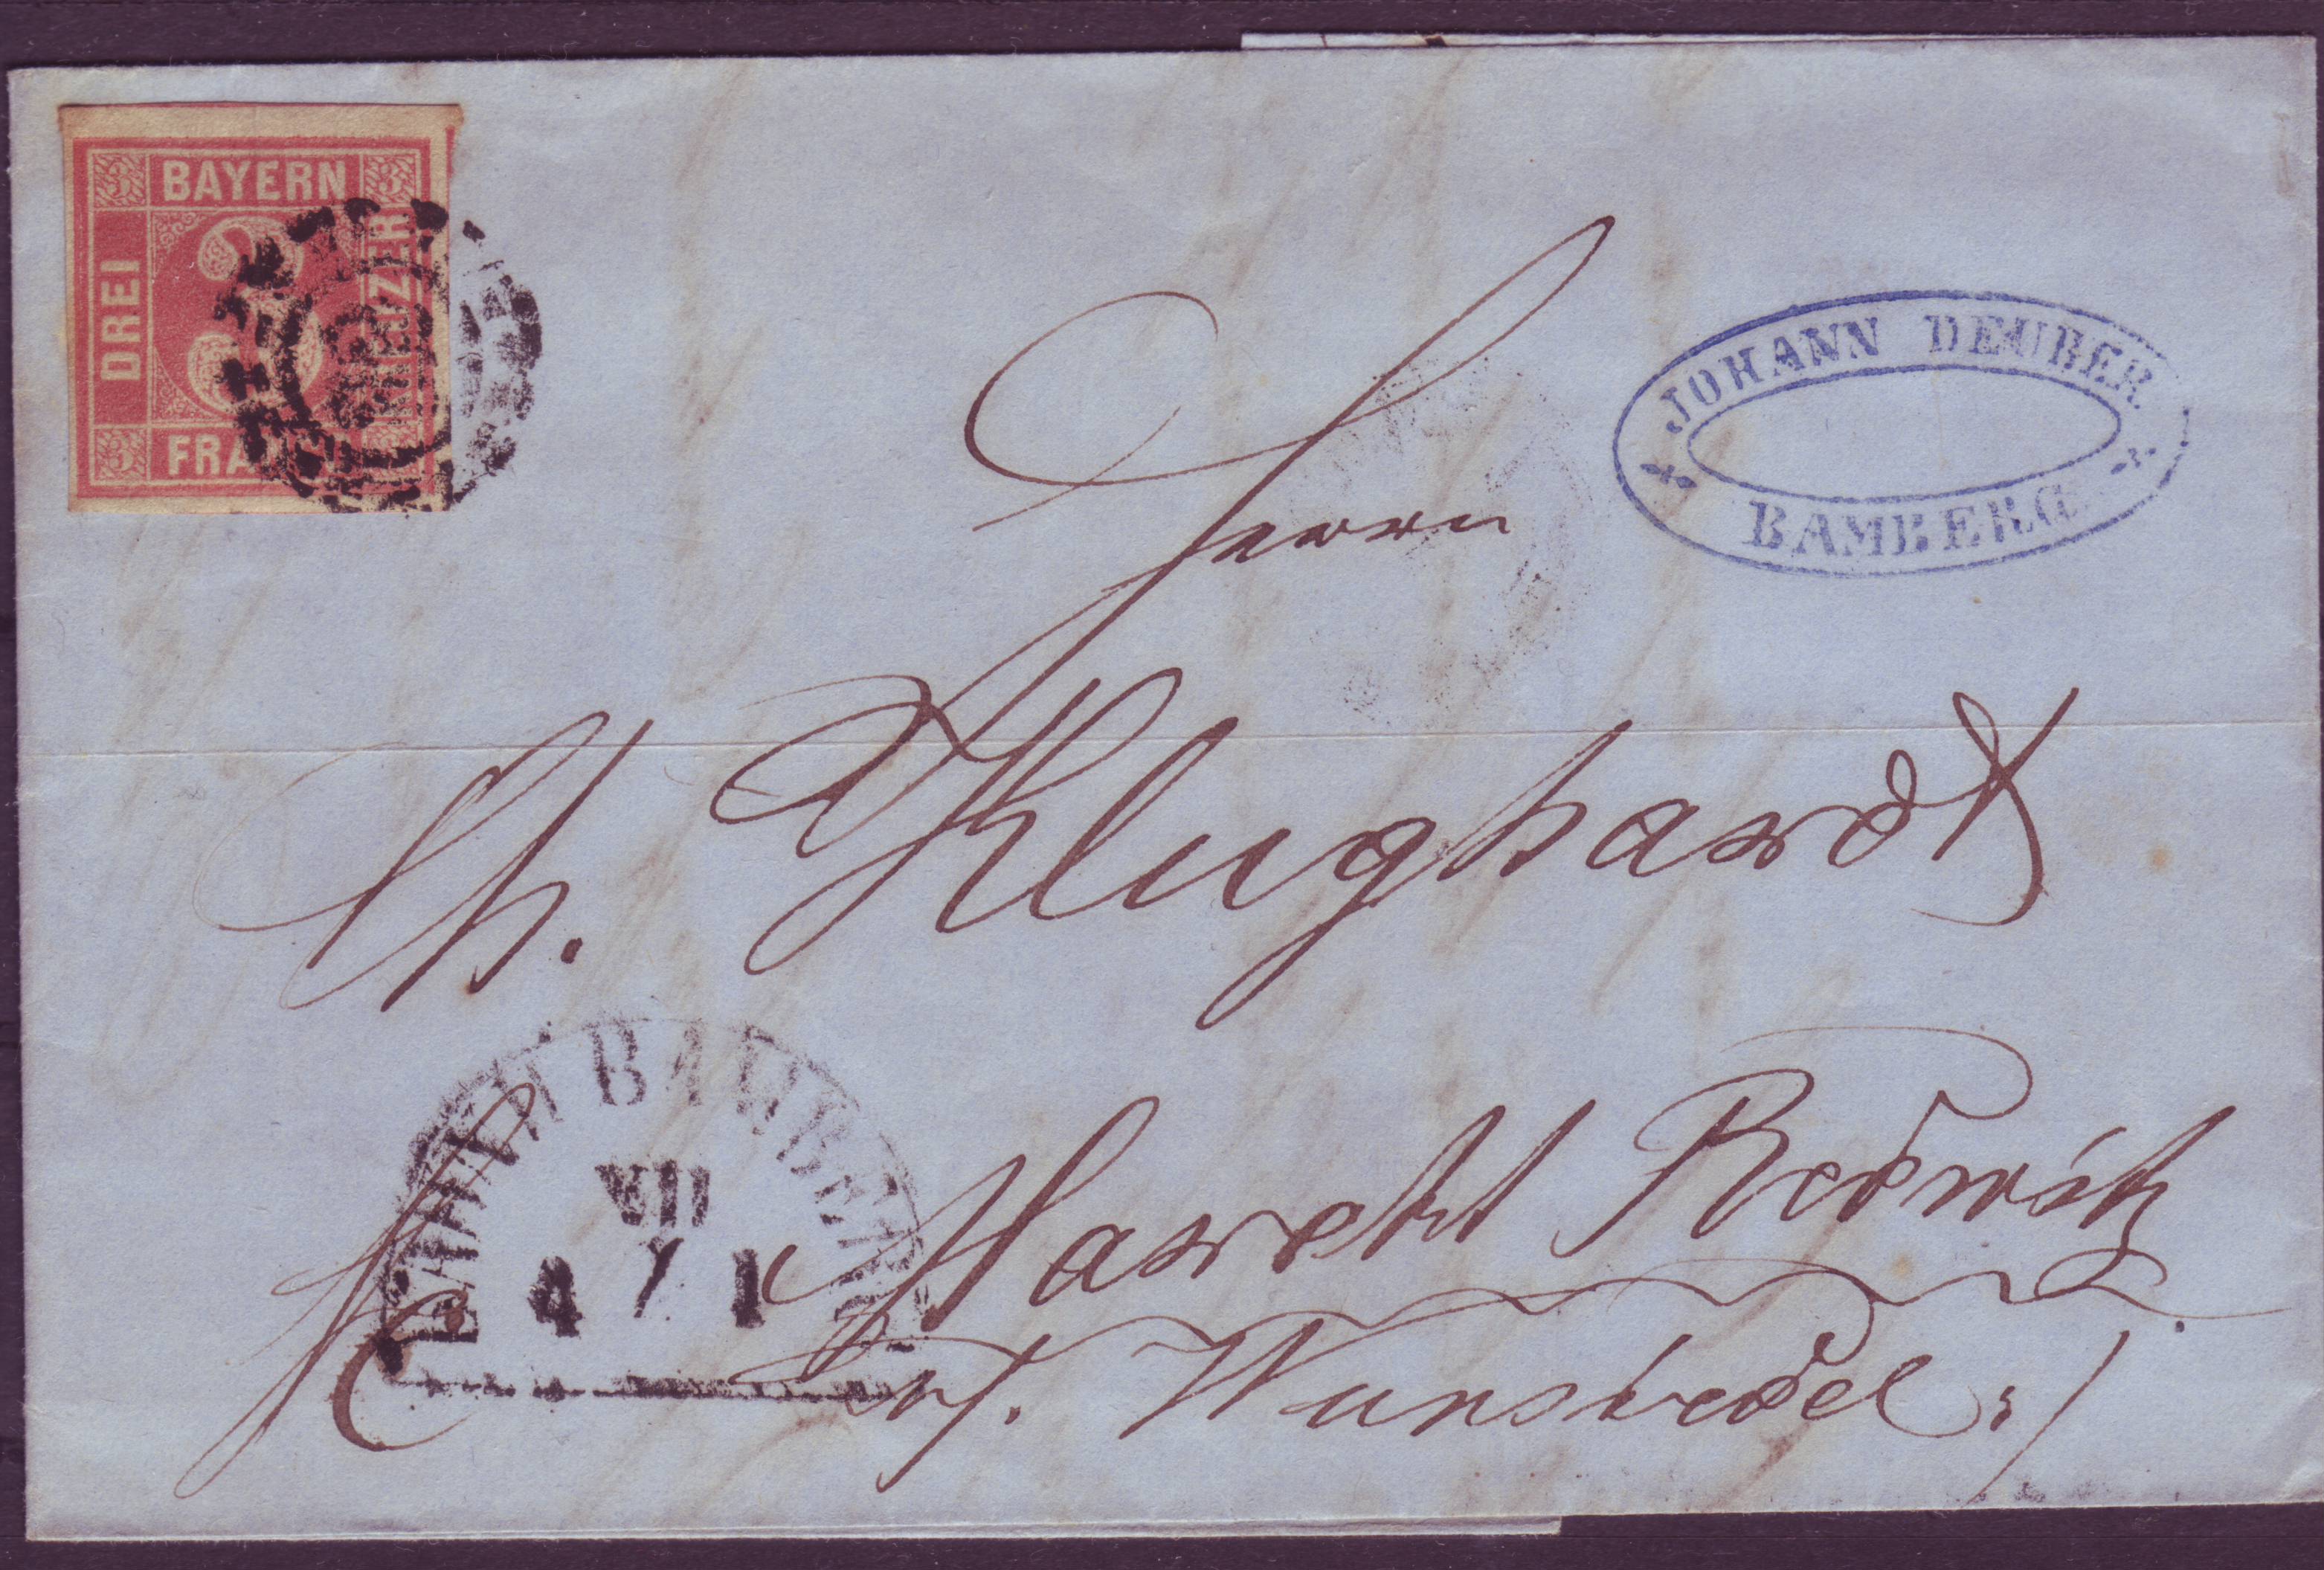 3 BAYERN 3
DREI
3
KREUZER
3 FRA
JOHANN DEUBER
BAMBERG
Herrn
Ch. Klughardt
BAHNH BAMBERG
VII
4 / 1
Marckt Redwitz
Wunsiedel